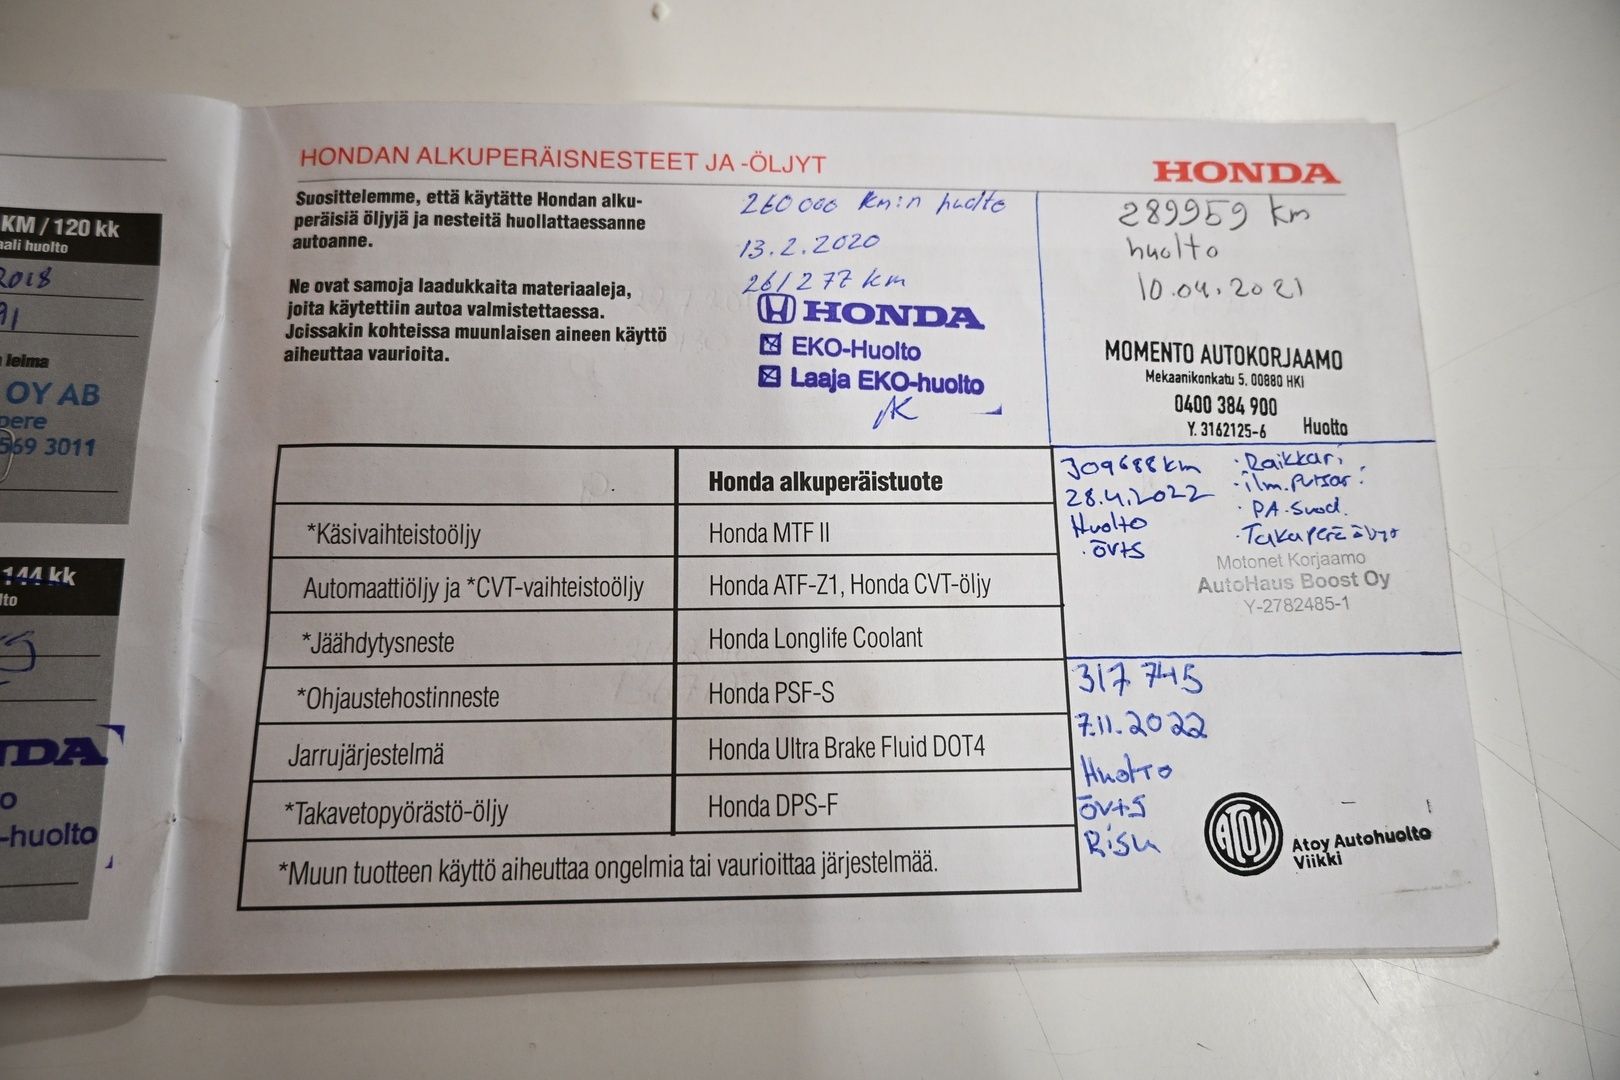 KM / 120 kk
aali huolto
2018
91
leima
OY AB
pere
569 3011
144 kk
lto
NDA
o
-huolto
HONDAN ALKUPERÄISNESTEET JA -ÖLJYT
HONDA
Suosittelemme, että käytätte Hondan alku-
peräisiä öljyjä ja nesteitä huollattaessanne
autoanne.
Ne ovat samoja laadukkaita materiaaleja,
joita käytettiin autoa valmistettaessa.
Joissakin kohteissa muunlaisen aineen käyttö
aiheuttaa vaurioita.
260 000 km:n huolto
13.2.2020
261277 km
HONDA
EKO-Huolto
Laaja EKO-huolto
289959 km
huolto
10.04.2021
MOMENTO AUTOKORJAAMO
Mekaanikonkatu 5, 00880 HKI
0400 384 900
Y. 3162125-6 Huolto
309688km
28.4.2022
Huolto
·övts
·Raikkari
·ilm.putsar.
·PA-Suod.
·Takaperäöljyt
Motonet Korjaamo
AutoHaus Boost Oy
Y-2782485-1
317 745
7.11.2022
Huolto
övts
Risu
ATOY
Atoy Autohuolto
Viikki
Honda alkuperäistuote
*Käsivaihteistoöljy Honda MTF II
Automaattiöljy ja *CVT-vaihteistoöljy Honda ATF-Z1, Honda CVT-öljy
*Jäähdytysneste Honda Longlife Coolant
*Ohjaustehostinneste Honda PSF-S
Jarrujärjestelmä Honda Ultra Brake Fluid DOT4
*Takavetopyörästö-öljy Honda DPS-F
*Muun tuotteen käyttö aiheuttaa ongelmia tai vaurioittaa järjestelmää.